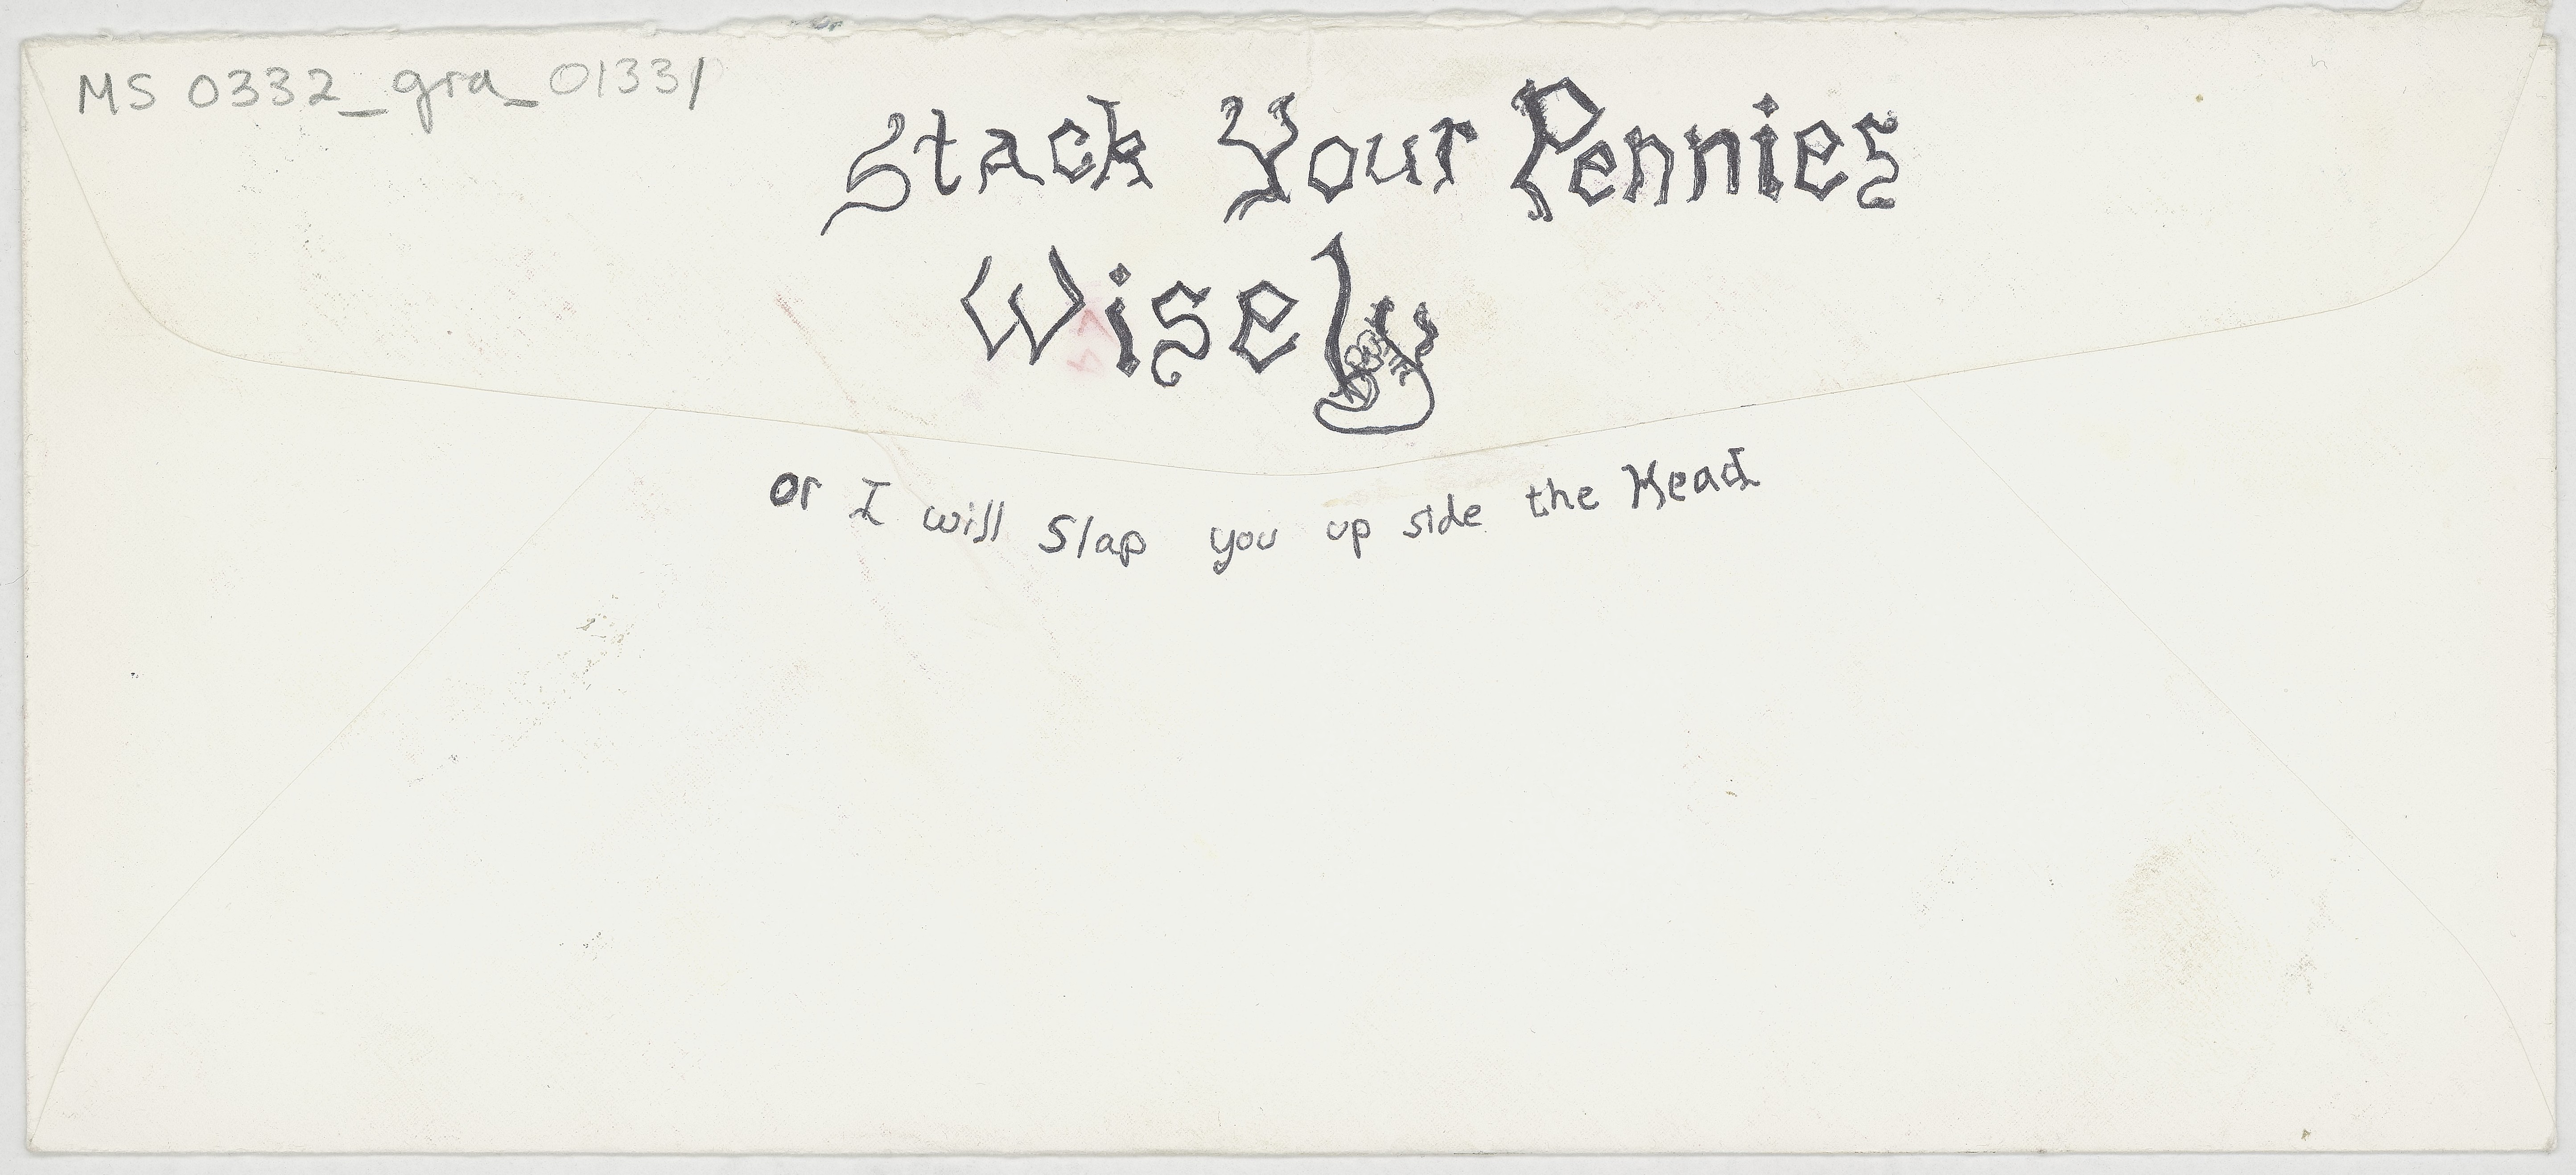 MS 0332_gra_01331
Stack Your Pennies
Wisely
or I will Slap you up side the Head